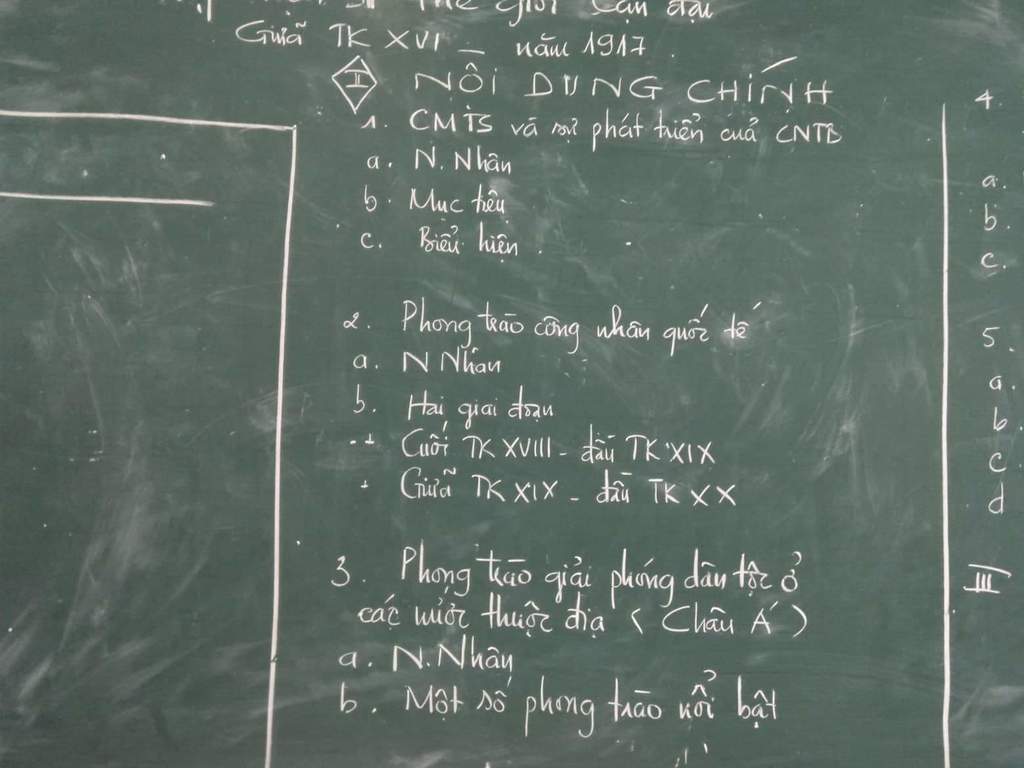 Thế giới Cận đại
Giữa TK XVI - năm 1917.
II NỘI DUNG CHÍNH
1. CMTS và sự phát triển của CNTB
a. N. Nhân
b. Mục tiêu
c. Biểu hiện.
2. Phong trào công nhân quốc tế
a. N Nhân
b. Hai giai đoạn
+ Cuối TK XVIII - đầu TK XIX
+ Giữa TK XIX - đầu TK XX
3. Phong trào giải phóng dân tộc ở
các nước thuộc địa (Châu Á)
a. N. Nhân
b. Một số phong trào nổi bật
4.
a.
b.
c.
5.
a.
b.
c
d
III